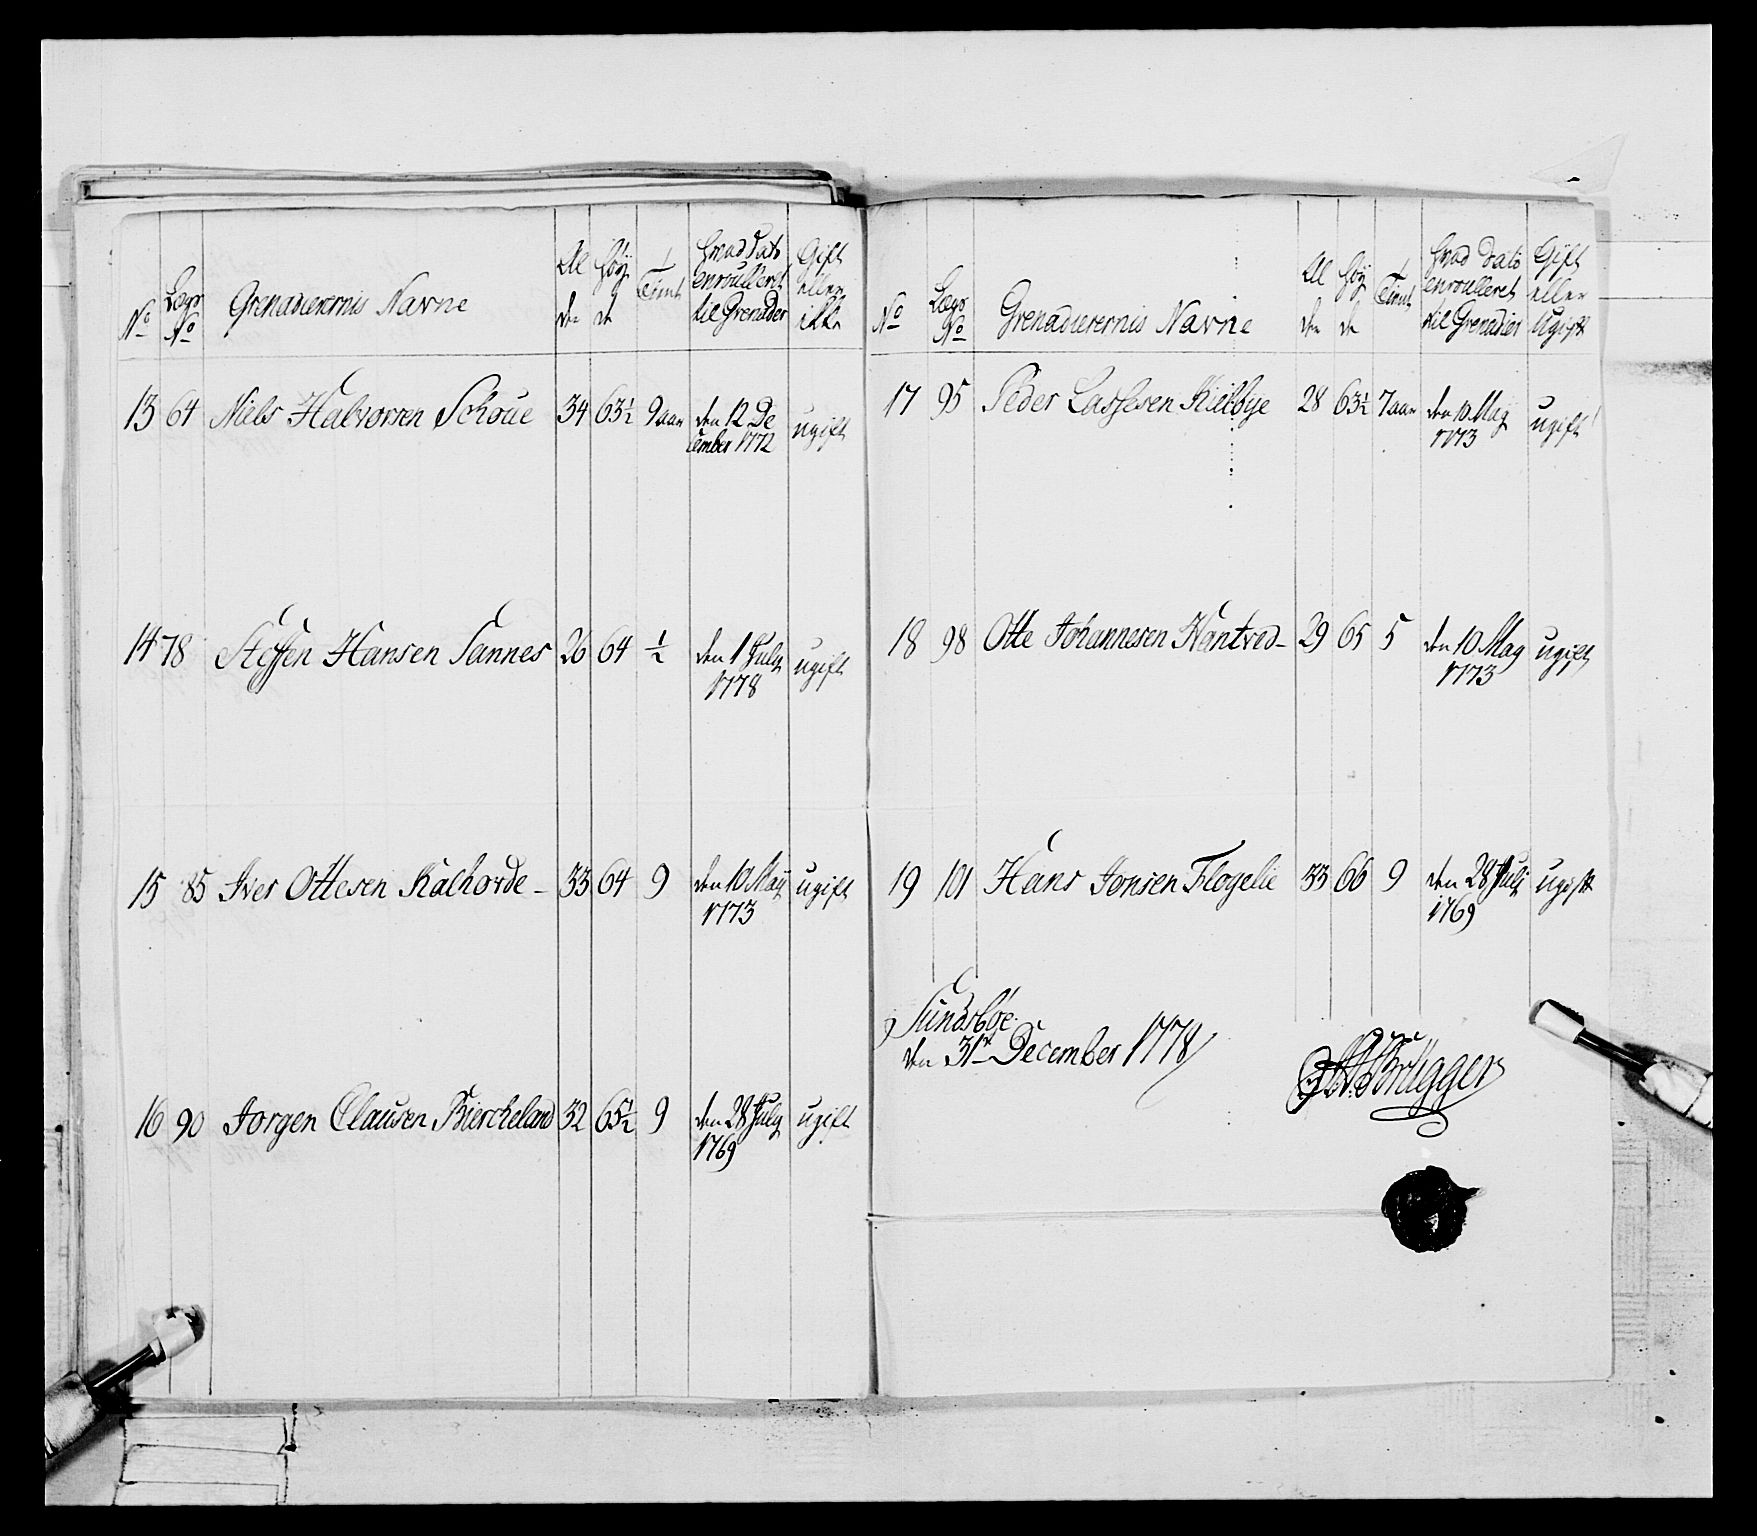 No
Lægs No
Grenadierernis Navne
Al den
Høy de
Tient
Hvad Dato enroulleret til Grenader
Gift eller ikke
13 64 Niels Halvorsen Schoue 34 63½ 9 aar den 12 De cember 1772 ugift
14 78 Steffen Hansen Sannes 26 64 ½ den 1 July 1778 ugift
15 85 Iver Ottesen Kalhovde - 33 64 9 den 10 Maij 1773 ugift
16 90 Jorgen Clausen Biercheland 32 65½ 9 den 28 July 1769 ugift
No
Lægs No
Grenadierernis Navne
Al den
Høy de
Tient
Hvad Dato enroulleret til Grenadier
Gift eller Ugift
17 95 Peder Lassesen Kielbye 28 63½ 7 aar den 10 May 1773 ugift
18 98 Otte Johannesen Hantved - 29 65 5 den 10 May 1773 ugift
19 101 Hans Jonsen Flogelie 33 66 9 den 28 Juli 1769 ugift
Sundsbøe
den 31te December 1778
Brügger